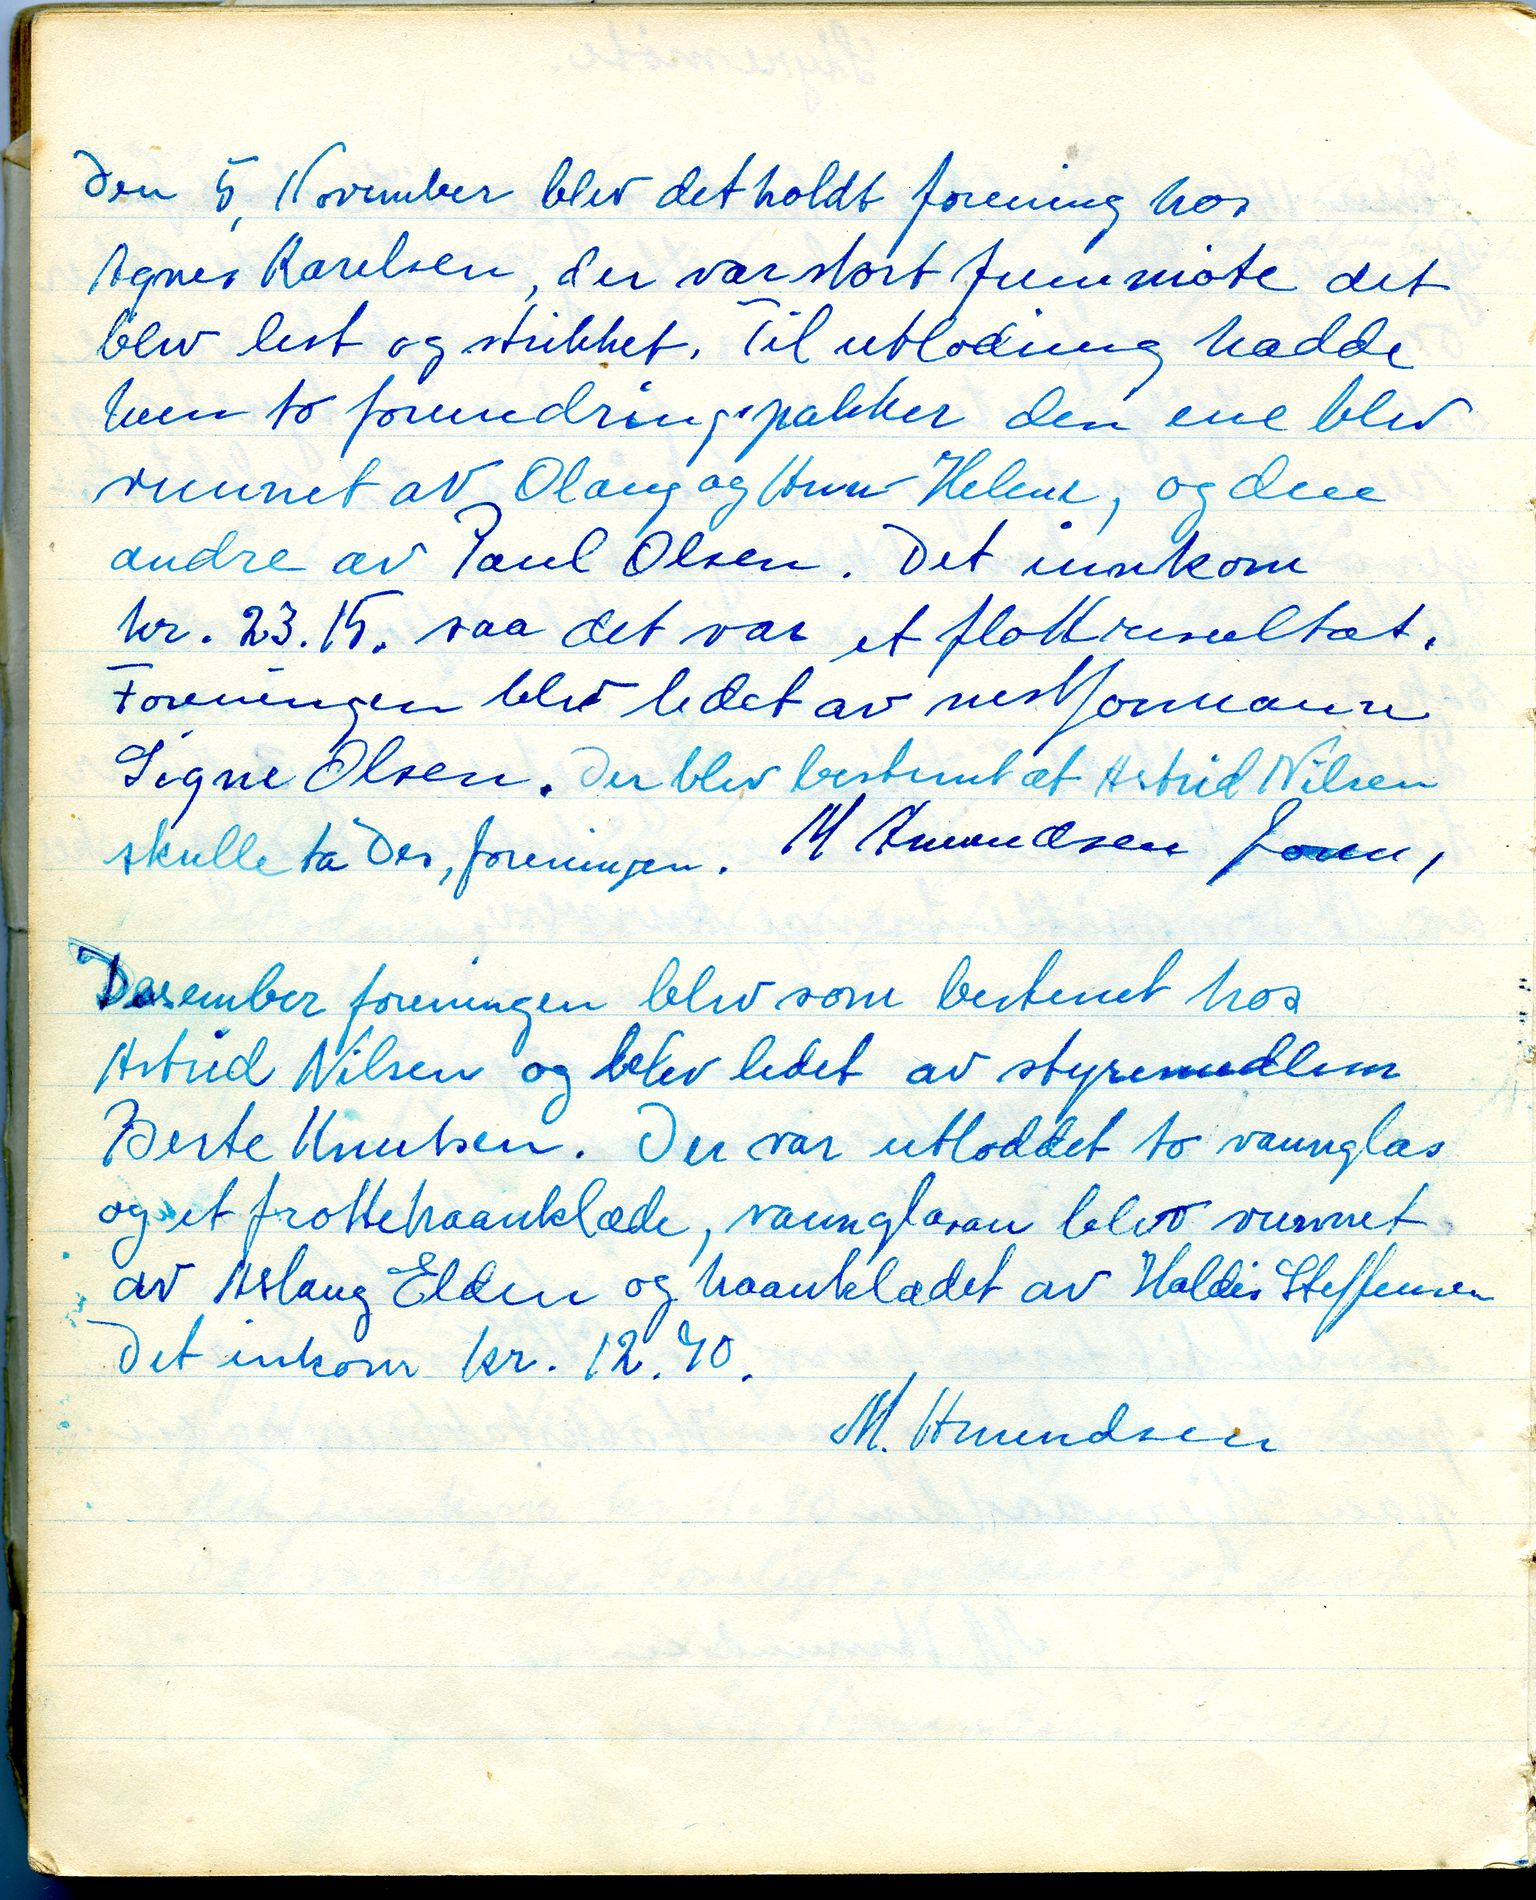 Den 5, November blev det holdt forening hos
Agnes Karelsen, der var stort fremmøte det
blev lest og strikket. Til utlodning hadde
hun to forundringspakker den ene blev
vunnet av Olaug og Helene, og den
andre av Paul Olsen. Det innkom
kr. 23.15. saa det var et flott resultat.
Foreningen blev ledet av nestformann
Signe Olsen. Der blev bestemt at Astrid Nilsen
skulle ta Des, foreningen. M Amundsen Form,
Desember foreningen blev som bestemt hos
Astrid Nilsen og blev ledet av styremedlem
Berte Knutsen. Der var utloddet to vannglas
og et frottehaanklæde, vannglasan blev vunnet
av Aslaug Elden og haanklædet av Haldis Steffensen
Det inkom kr. 12.70.
M. Amundsen